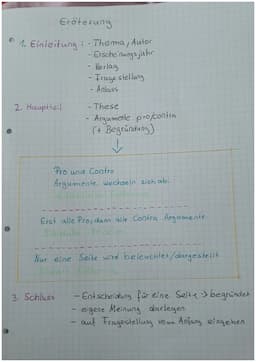 Erörterung
1. Einleitung: - Thema, Autor
- Erscheinungsjahr
- Verlag
- Fragestellung
- Anlass
2. Hauptteil - These
- Argumente pro/contra
(+ Begründung)
Pro und Contra
Argumente wechseln sich ab.
Erst alle Pro, dann alle Contra Argumente
Nur eine Seite wird beleuchtet/dargestellt
3. Schluss - Entscheidung für eine Seite → begründet
- eigene Meinung darlegen
- auf Fragestellung vom Anfang eingehen